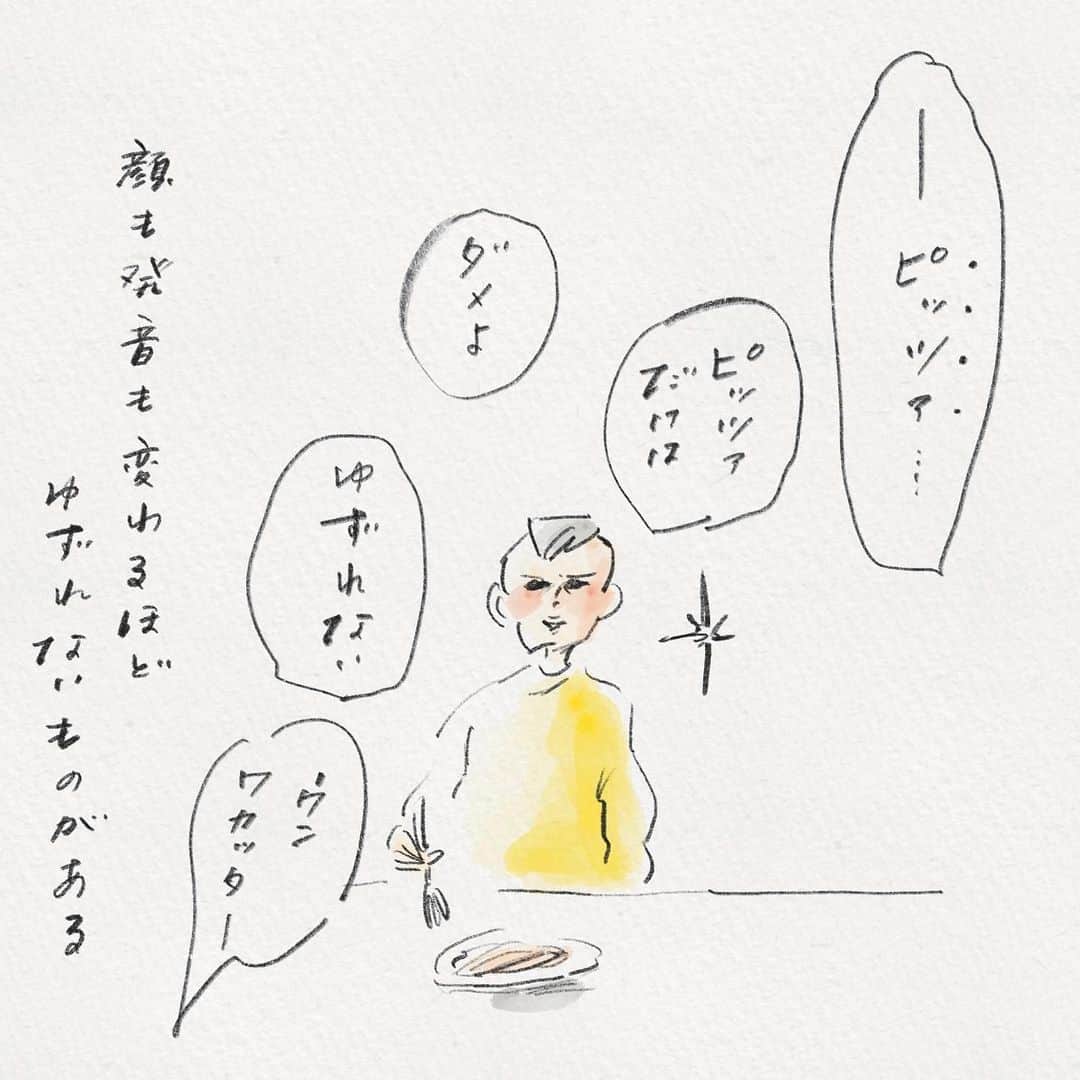 ーピッツァ…
ピッツァ
だけは
ダメよ
ゆずれない
ウン
ワカッター
顔も発音も変わるほど
ゆずれないものがある